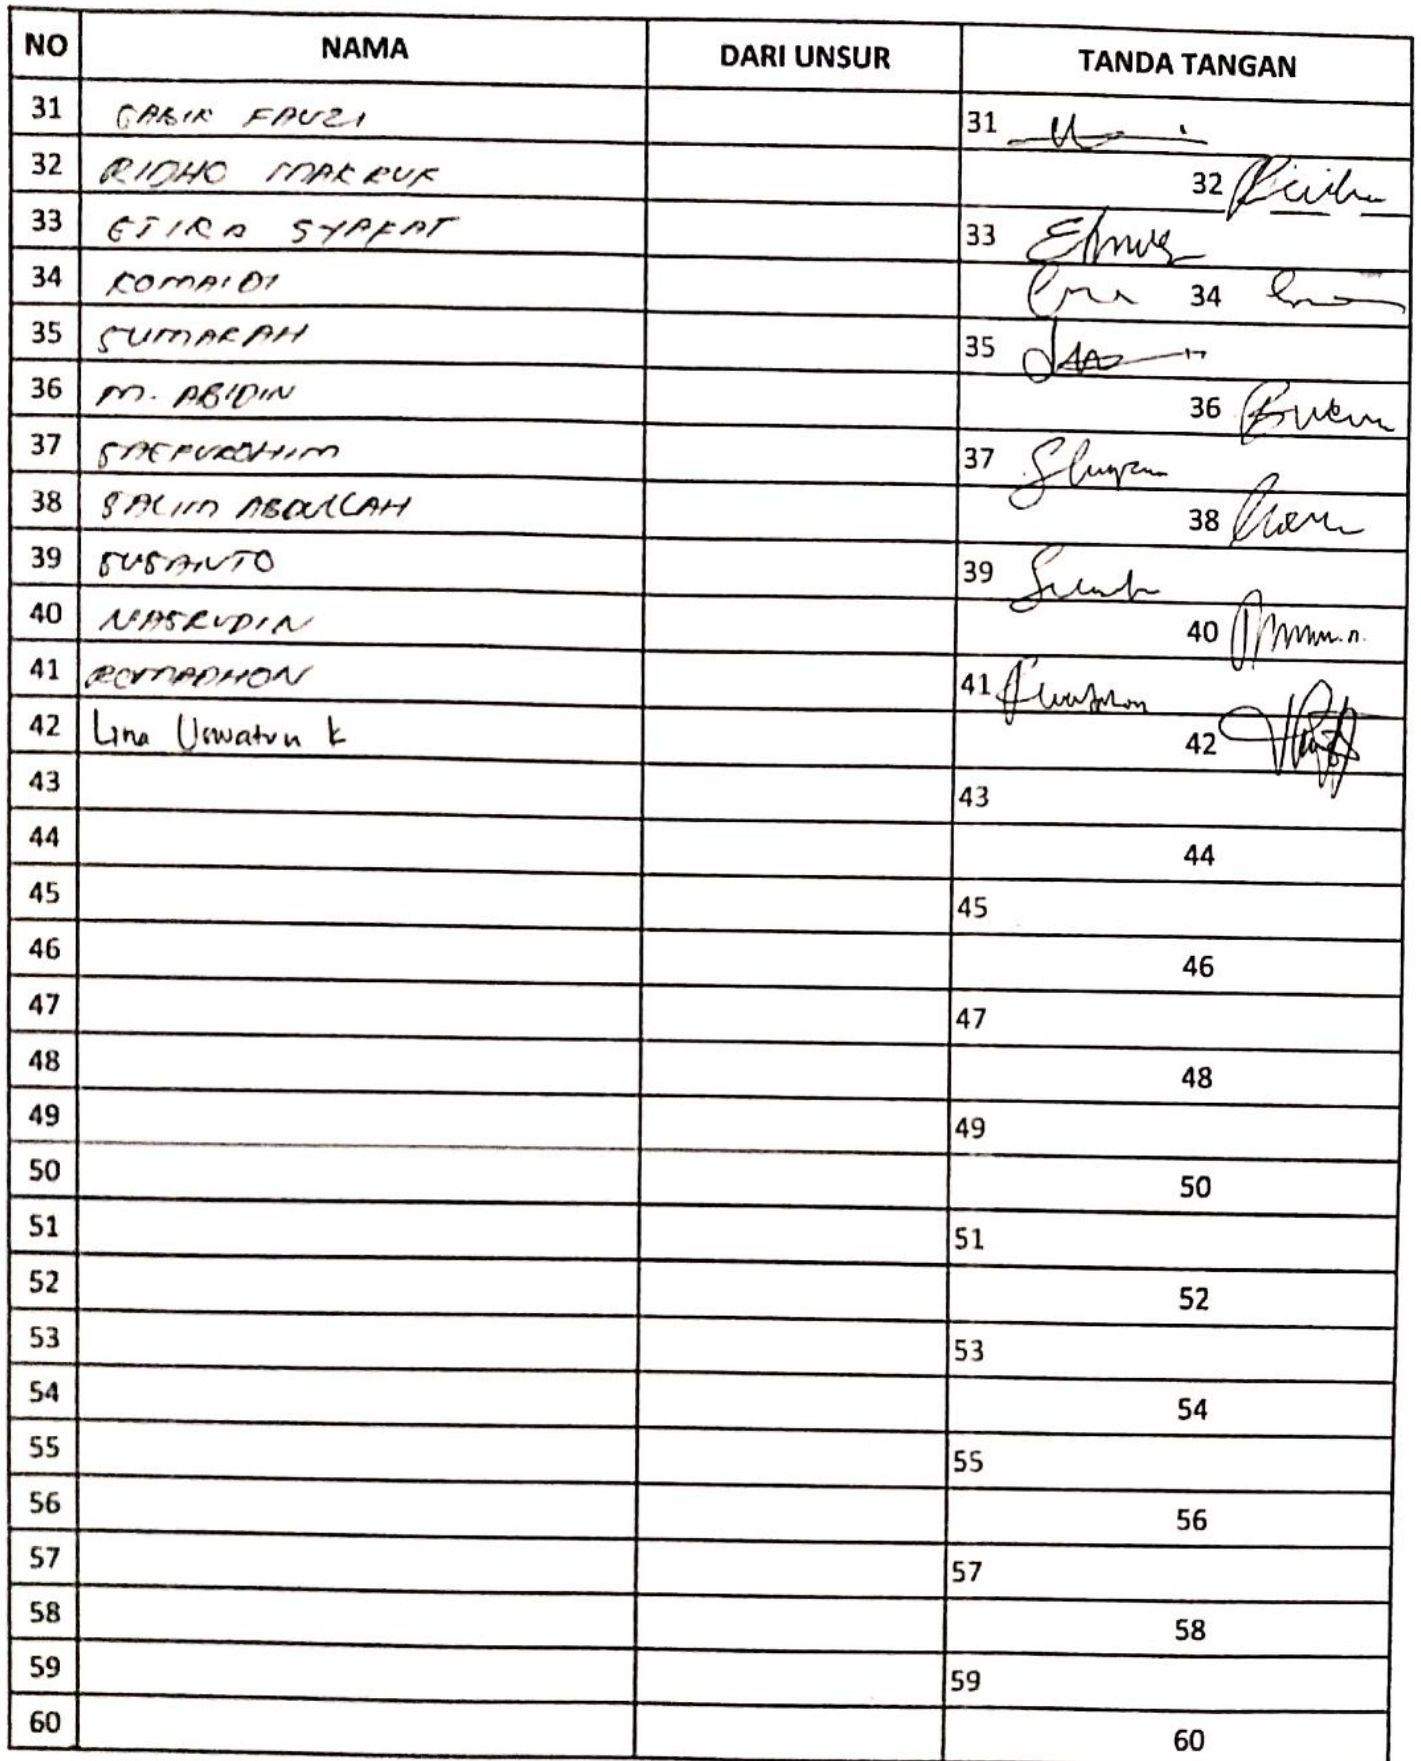 NO NAMA DARI UNSUR TANDA TANGAN
31 FAUZI 31
32 RIDHO MAKRUF 32
33 33
34 ROMAIDI 34
35 SUMARAH 35
36 M. ABIDIN 36
37 37
38 SALIM ABDULLAH 38
39 SUSANTO 39
40 NASRUDIN 40
41 ROMADHON 41
42 Lina Uswatun K 42
43 43
44 44
45 45
46 46
47 47
48 48
49 49
50 50
51 51
52 52
53 53
54 54
55 55
56 56
57 57
58 58
59 59
60 60